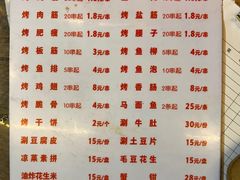 烤肉筋 20串起 1.8元/串 烤盐筋 20串起 1.8元/串
烤肥瘦 20串起 1.8元/串 烤腰子 20串起 1.8元/串
烤板筋 5串起 3元/串 烤鱼柳 5串起 4元/串
烤鱼排 5串起 4元/串 烤鱼泡 5串起 4元/串
烤鸡翅 2串起 8元/串 烤香肠 2串起 8元/串
烤脆骨 10串起 4元/串 马面鱼 25元/条
烤干饼 2元/个 涮牛肚 30元/份
涮豆腐皮 15元/份 涮土豆片 15元/份
凉菜素拼 15元/盘 毛豆花生 15元/盘
油炸花生米 15元/盘 蟹钳 28元/盘